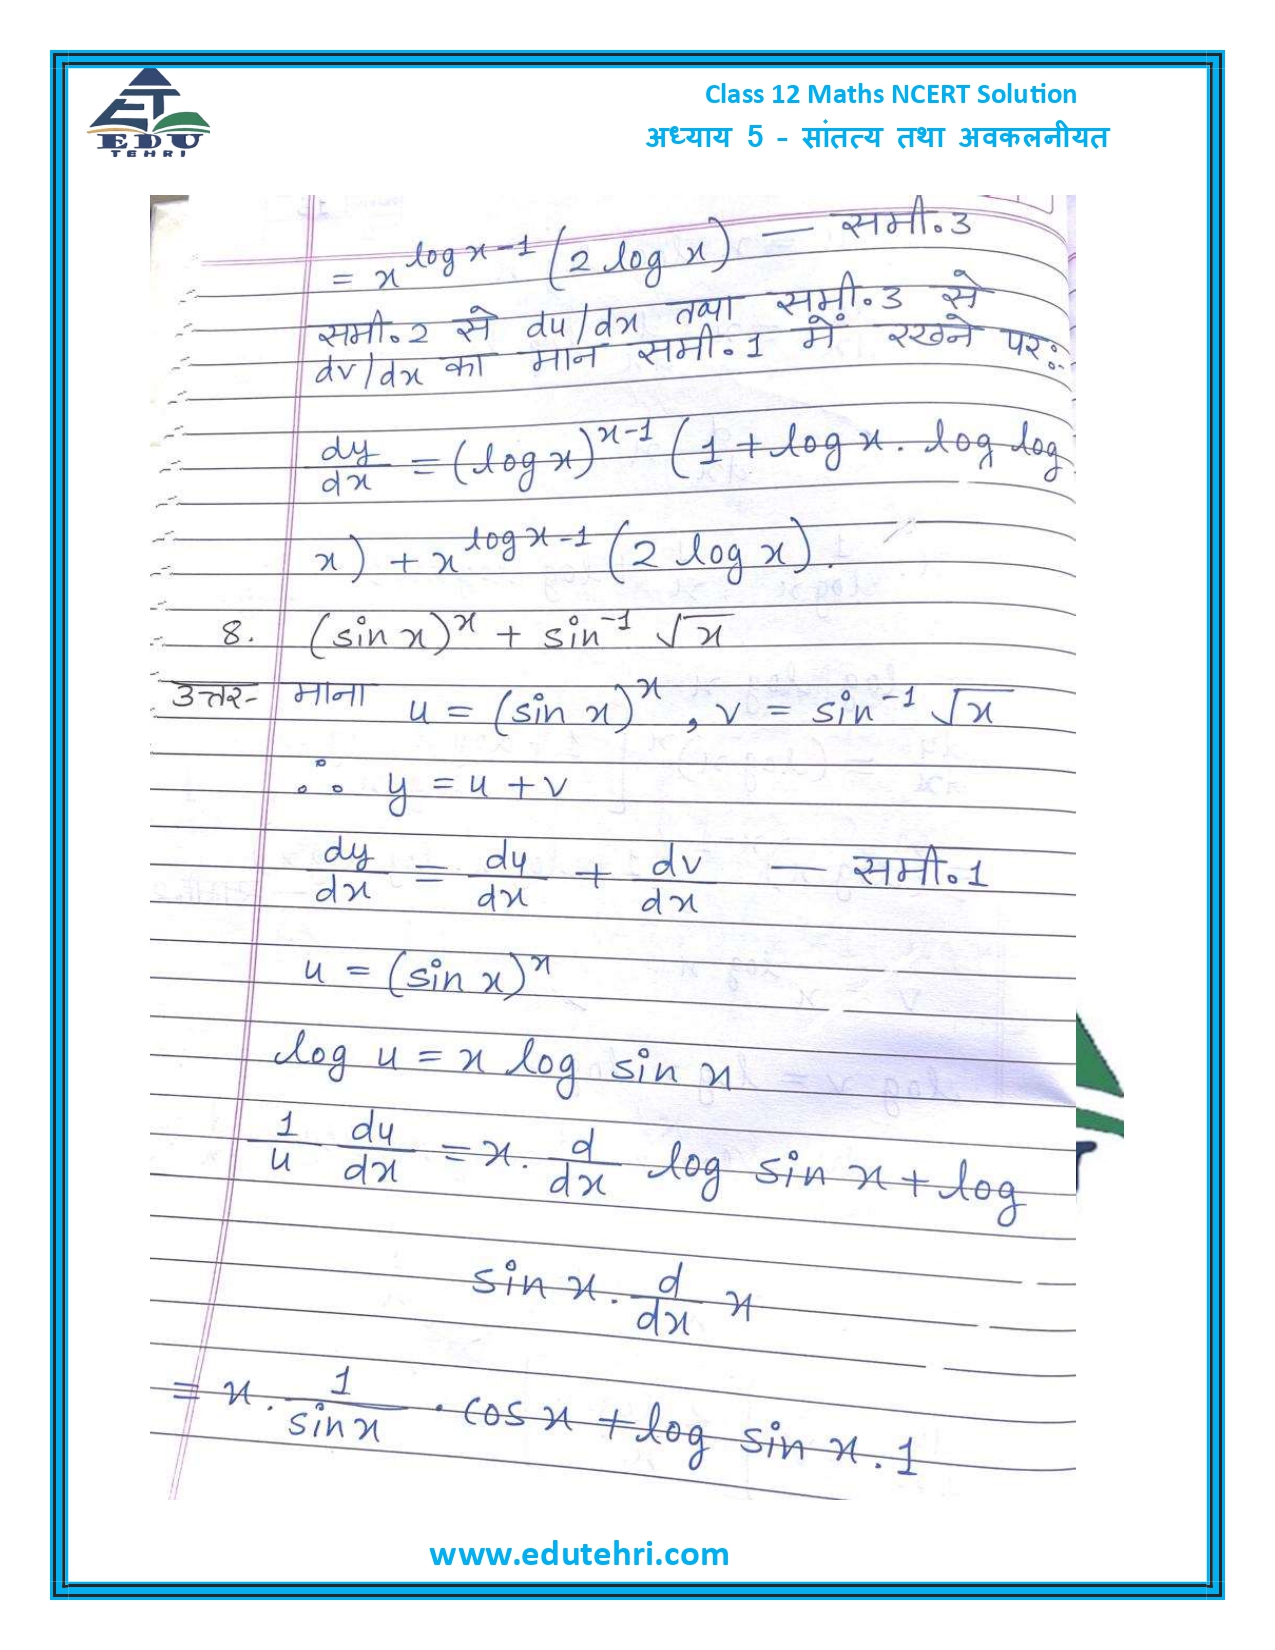 EDU
TEHRI
Class 12 Maths NCERT Solution
अध्याय 5 - सांतत्य तथा अवकलनीयत
= x^(log x-1) (2 log x) — समी॰3
समी॰2 से du/dx तथा समी॰3 से
dv/dx का मान समी॰1 में रखने पर:-
dy/dx = (log x)^(x-1) (1 + log x . log log
x) + x^(log x-1) (2 log x).
8. (sin x)^x + sin^-1 √x
उत्तर- माना u = (sin x)^x, v = sin^-1 √x
∴ y = u + v
dy/dx = du/dx + dv/dx — समी॰1
u = (sin x)^x
log u = x log sin x
1/u du/dx = x . d/dx log sin x + log
sin x . d/dx x
= x . 1/sin x . cos x + log sin x . 1
www.edutehri.com